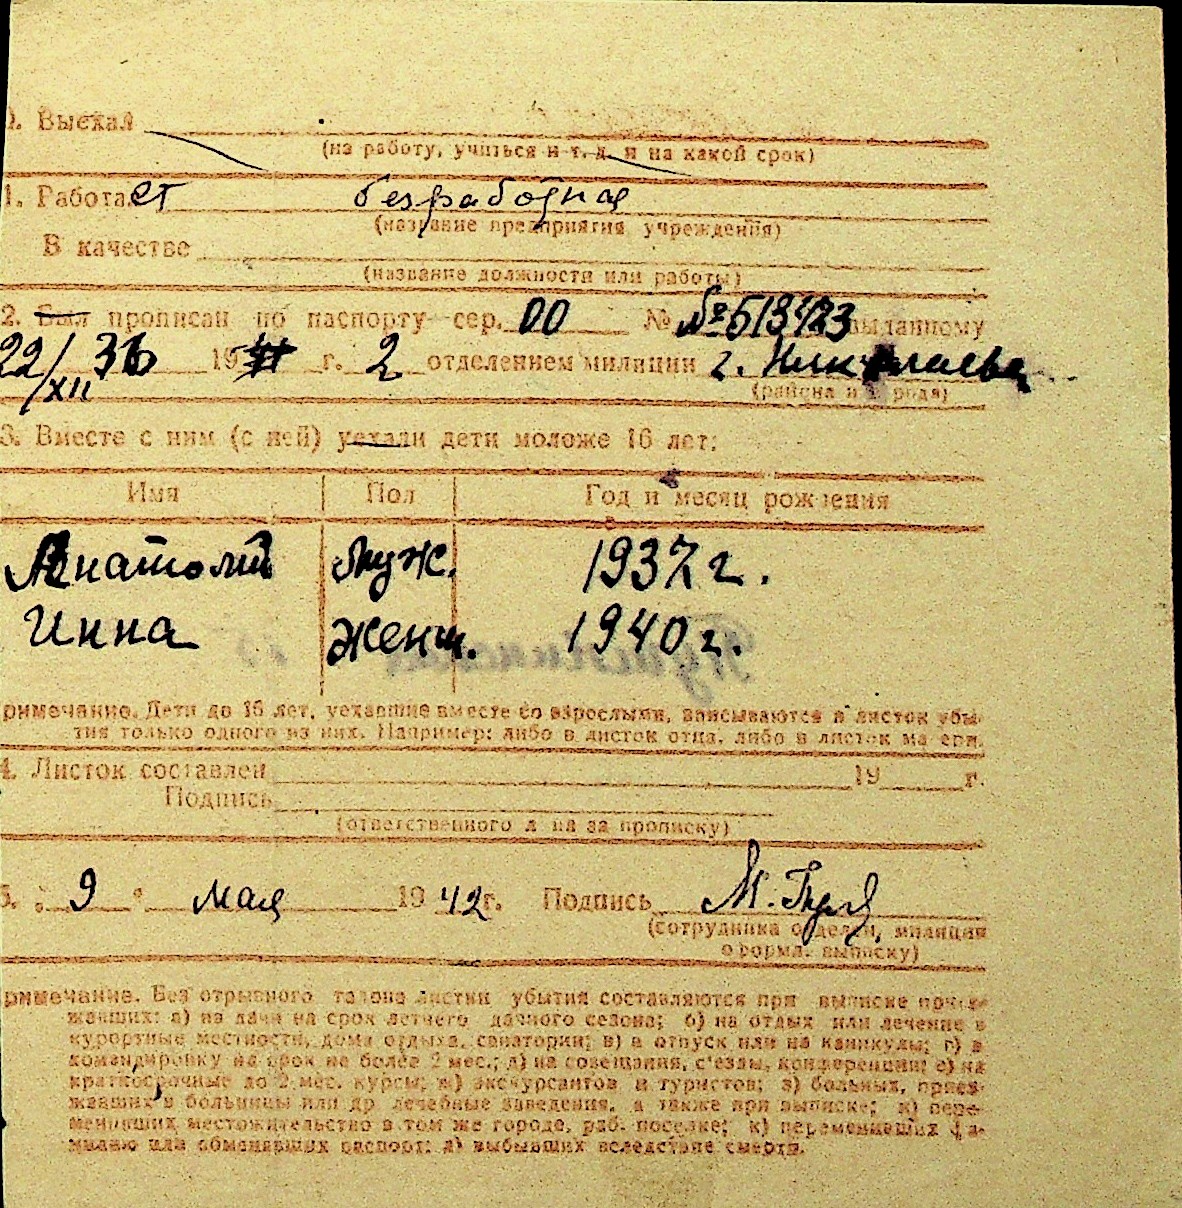 0. Выехал
(на работу, учиться и т. д. и на какой срок)
1. Работает безработная
(название предприятия учреждения)
В качестве
(название должности или работы)
2. Был прописан по паспорту сер. 00 № №513423 выданному
22/XII 36 19 г. 2 отделением милиции г. Николаева
(района и города)
3. Вместе с ним (с ней) уехали дети моложе 16 лет:
Имя Пол Год и месяц рождения
Анатолий муж. 1937 г.
Инна женщ. 1940 г.
римечание. Дети до 16 лет, уехавшие вместе со взрослыми, вписываются в листок убы-
тия только одного из них. Например: либо в листок отца, либо в листок матери.
4. Листок составлен 19 г.
Подпись
(ответственного лица за прописку)
5. " 9 " мая 1942 г. Подпись М.
(сотрудника отделен. милиции
оформл. выписку)
римечание. Без отрывного талона листки убытия составляются при выписке проез-
жавших: а) на дачи на срок летнего дачного сезона; б) на отдых или лечение в
курортные местности, дома отдыха, санатории; в) в отпуск или на каникулы; г) в
командировку на срок не более 2 мес.; д) на совещания, с'езды, конференции; е) на
краткосрочные до 2 мес. курсы; ж) экскурсантов и туристов; з) больных, приез-
жавших в больницы или др лечебные заведения, а также при выписке; и) пере-
менивших местожительство в том же городе, раб. поселке; к) переменивших фа-
милию или обменявших паспорт; л) выбывших вследствие смерти.